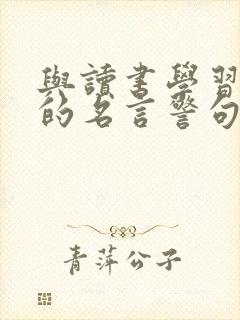 與讀書學習
的名言警句
青萍公子